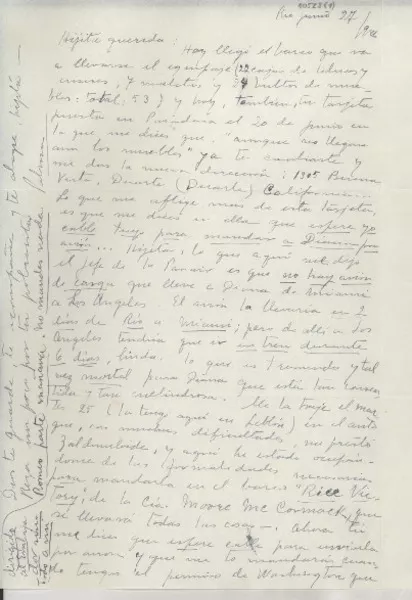 Rio junio 27/
Hijita querida: Hoy llegó el barco que va
a llevarse el equipaje (22 cajas de libros y
enseres, 7 maletas y 24 bultos de mue-
bles: total: 53) y hoy, también, tu tarjeta
puesta en Pasadena el 20 de junio en
la que me dices que "aunque no lleguen
aún los muebles" ya te cambiaste y
me das la nueva dirección: 1305 Buena
Vista, Duarte (Duarte) California.
Lo que me aflige más de esta tarjeta,
es que me dices en ella que espere yo
cable tuyo para mandar a Diana por
avión... Hijita, lo que aquí me dijo
el jefe de la Panair es que no hay avión
de carga que lleve a Diana de Miami
a Los Angeles. El avión la llevaría en 2
días de Rio a Miami; pero de allí a Los
Angeles tendría que ir en tren durante
6 días, linda. Lo que es tremendo y tal
vez mortal para Diana que está tan consen-
tida y tan
Me la traje el mar-
tes 25 (la tengo aquí en Leblón) en el auto
que, con muchas dificultades, me prestó
Zaldumbide, y aquí he estado ocupán-
dome de las formalidades necesarias
para mandarla en el barco "Rice Vic-
tory", de la Cía. Moore Mc Cormack, que
se llevará todas las cosas. Ahora tú
me dices que espere cable para enviarla
por avión y que me lo mandarás cuan-
do tengas el permiso de Washington que
Dios te guarde, te acompañe y te alegre, hijita